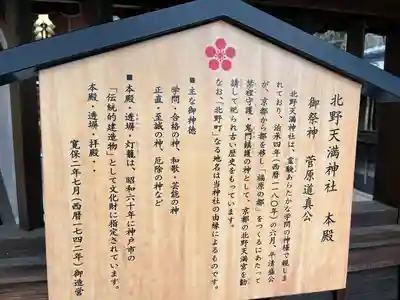 北野天満神社 本殿
御祭神 菅原道真公
北野天満神社は、霊験あらたかな学問の神様で親しま
れており、治承四年(西暦一一八〇年)の六月、平清盛公
が、京都から都を移し「福原の都」をつくるにあたって
禁裡守護・鬼門鎮護の神として、京都の北野天満宮を勧
請して祀られ古い歴史をもっています。
なお「北野町」なる地名は当神社の由縁によるものです。
■主な御神徳
学問・合格の神、和歌・芸能の神
正直・至誠の神、厄除の神など
■本殿・透塀・灯籠は、昭和六十年に神戸市の
「伝統的建造物」として文化財に指定されています。
本殿・透塀・拝殿・・
寛保二年七月(西暦一七四二年)御造営